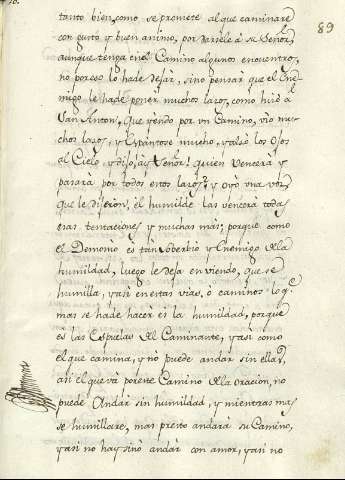 89
tanto bien, como se promete al que caminare
con gusto y buen animo, por darsele á su Señor,
aunque tenga en el Camino algunos encuentros,
no por eso lo ha de dejar, sino pensar que el Ene-
migo le ha de poner muchos lazos, como hizo á
San Anton, que yendo por vn Camino, vio mu-
chos lazos, y Espantose mucho, y alsó los Ojos
al Cielo y dijo, ay Señor! quien vencerá y
pasará por todos estos lazos? y oyó vna voz,
que le dijeron, el humilde las vencerá todas
esas tentaciones y muchas mas; porque como
el Demonio es tan soberbio y Enemigo de la
humildad, luego le deja en viendo, que se
humilla, y asi en estas vias, o caminos lo q.e
mas se ha de hacer es la humildad, porque
es las Espuelas del Caminante, y asi como
el que camina, y no puede andar sin ellas,
asi el que vá por este Camino de la oracion, no
puede Andar sin humildad, y mientras mas
se humillare, mas presto andará su Camino,
y asi no hay sino andar con amor, y asi no